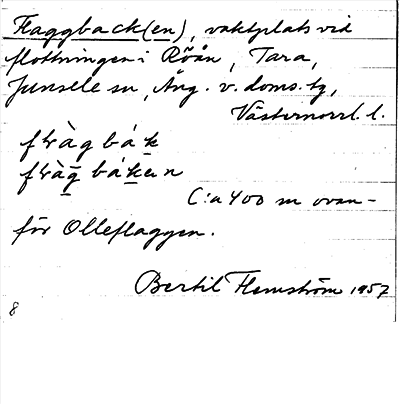 Flaggback(en), vaktplats vid
flottningen i Röån, Tara,
Junsele sn, Ång. v. doms.tg,
Västernorrl. l.
C:a 400 m ovan-
för Olleflaggen.
Bertil Flemström 1957
8